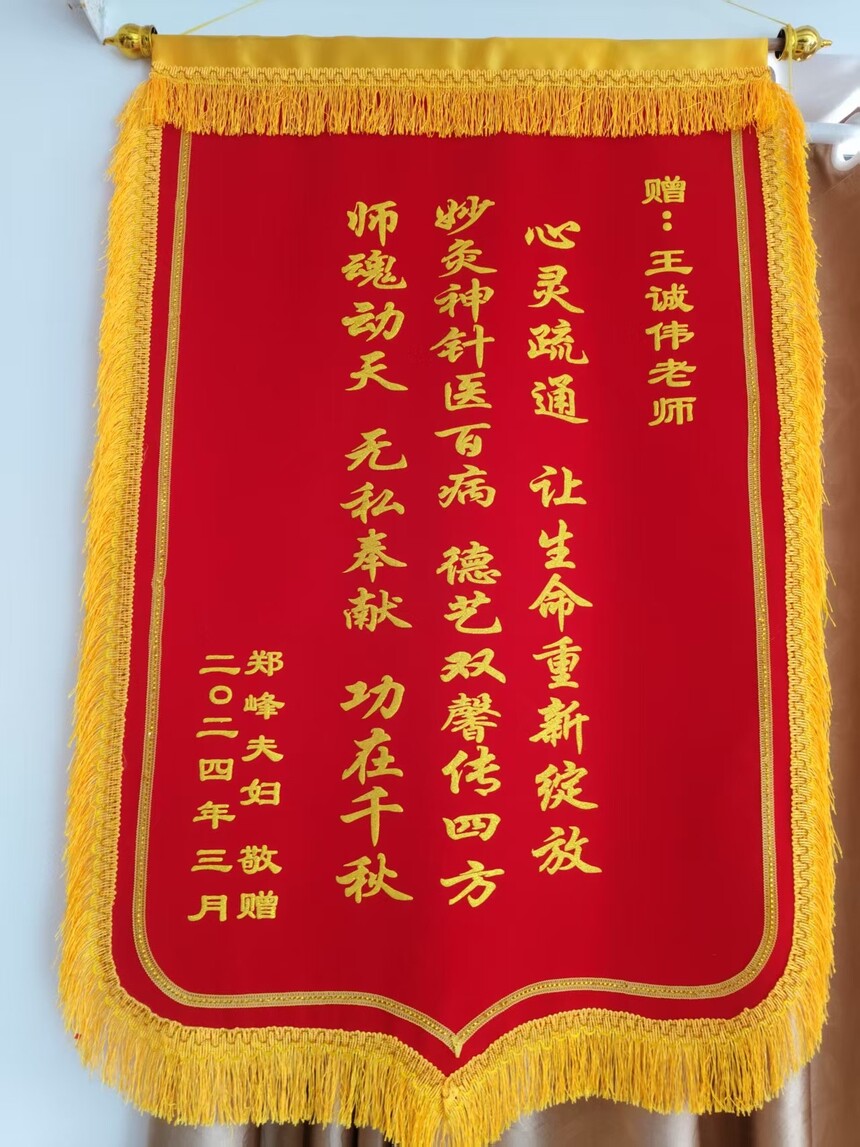 赠：王诚伟老师
心灵疏通 让生命重新绽放
妙灸神针医百病 德艺双馨传四方
师魂动天 无私奉献 功在千秋
郑峰夫妇 敬赠
二〇二四年三月